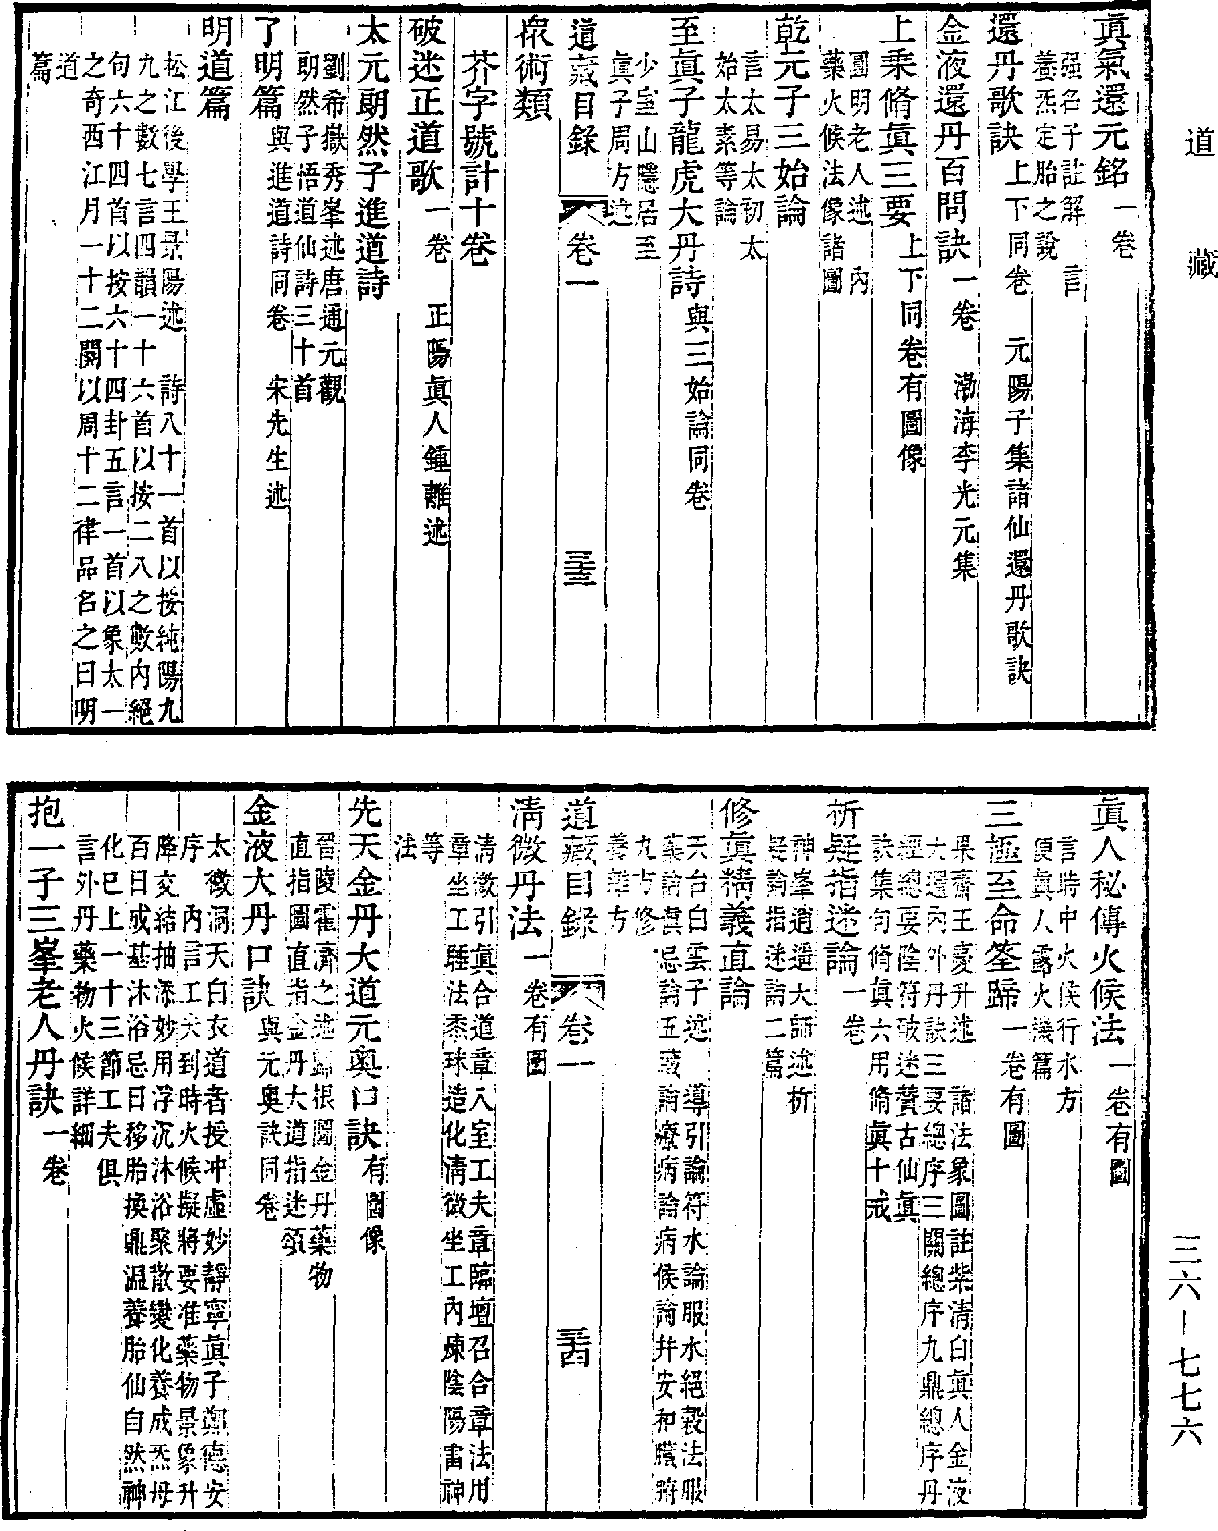 道藏
眞氣還元銘一卷
强名子註解 言
養炁定胎之說
還丹歌訣上下同卷 元陽子集諸仙還丹歌訣
金液還丹百問訣一卷 渤海李光元集
上乘脩眞三要上下同卷有圖像
圓明老人述 內
藥火候法像諸圖
乾元子三始論
言太易太初太
始太素等論
至眞子龍虎大丹詩與三始論同卷
少室山隱居至
眞子周方述
道藏目錄 卷一 三十三
衆術類
芥字號計十卷
破迷正道歌一卷 正陽眞人鍾離述
太元朗然子進道詩
劉希嶽秀峯述唐通元觀
朗然子悟道仙詩三十首
了明篇與進道詩同卷 宋先生述
明道篇
松江後學王景陽述 詩八十一首以按純陽九
九之數七言四韻一十六首以按二八之數內絕
句六十四首以按六十四卦五言一首以象太一
之奇西江月一十二闋以周十二律品名之曰明
道
篇
眞人秘傳火候法一卷有圖
言時中火候行水方
便眞人露火機篇
三極至命筌蹄一卷有圖
果齋王慶升述 諸法象圖註紫淸白眞人金液
大還內外丹訣三要總序三關總序九鼎總序丹
經總要陰符破迷贊古仙眞
訣集句脩眞六用脩眞十戒
析疑指迷論一卷
神峯逍遥大師述析
疑論指迷論二篇
修眞精義直論
天台白雲子述 導引論符水論服水絕穀法服
藥論慎忌論五臟論療病論病候論幷安和臟腑
九方修
養雜方
道藏目錄 卷一 三十四
淸微丹法一卷有圖
淸微引眞合道章入室工夫章臨壇召合章法用
章坐工睡法黍珠造化淸微坐工內煉陰陽雷神
等
法
先天金丹大道元奧口訣有圖像
晉陵霍濟之述歸根圖金丹藥物
直指圖直指金丹大道指迷頌
金液大丹口訣與元奧訣同卷
太微洞天白衣道者授冲虛妙靜寧眞子鄭德安
序 內言工夫到時火候擬將要准藥物景象升
降交結抽添妙用浮沉沐浴聚散變化養成炁母
百日成基沐浴忌日移胎換鼎温養胎仙自然神
化已上一十三節工夫俱
言外丹藥物火候詳細
抱一子三峯老人丹訣一卷
三六—七七六